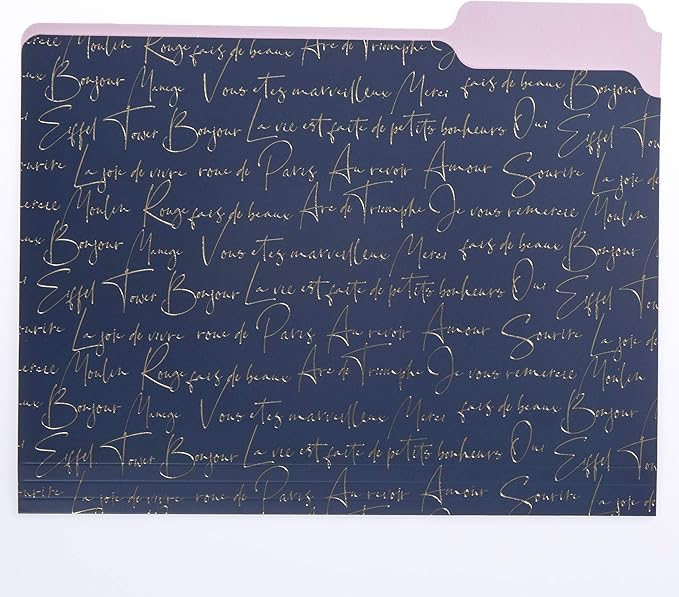 rcie Moulin Rouge fais de beaux Arc de Triomphe Je
Bonjour Manege Vous etes marveilleux Merci fais de beaux Bonjour
Eiffel Tower Bonjour La vie est faite de petits bonheurs Oui Eiffel
ourire La joie de vivre roue de Paris Au revoir Amour Sourire La joie de
ercie Moulin Rouge fais de beaux Arc de Triomphe Je vous remercie Moulin
Bonjour Manege Vous etes marveilleux Merci fais de beaux Bonjour
Eiffel Tower Bonjour La vie est faite de petits bonheurs Oui Eiffel
ourire La joie de vivre roue de Paris Au revoir Amour Sourire La joie de
ercie Moulin Rouge fais de beaux Arc de Triomphe Je vous remercie Moulin
Bonjour Manege Vous etes marveilleux Merci fais de beaux Bonjour
Eiffel Tower Bonjour La vie est faite de petits bonheurs Oui Eiffel
Sourire La joie de vivre roue de Paris Au revoir Amour Sourire La joie de